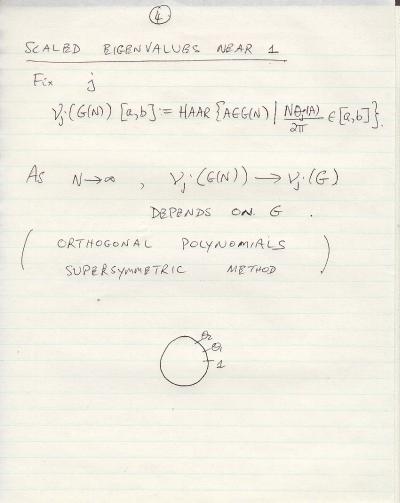 ④
SCALED EIGENVALUES NEAR 1
Fix j
ν_j(G(N))[a,b] := HAAR {A∈G(N) | Nθ_j(A)/2π ∈ [a,b]}.
As N→∞, ν_j(G(N)) → ν_j(G)
DEPENDS ON G.
(ORTHOGONAL POLYNOMIALS
SUPERSYMMETRIC METHOD)
θ₂
θ₁
1